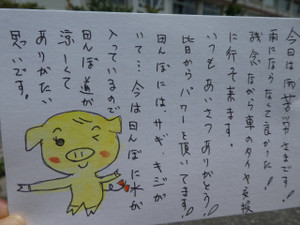 今日は雨
雨にならなくて良かった!
残念ながら車のタイヤ交換
に行って来ます。
いつもあいさつありがとう!
皆からパワーを頂いてます!
田んぼにはサギ、キジが
いて…今は田んぼに水が
入っているので
田んぼ道が
涼しくて
ありがたい
思いです。